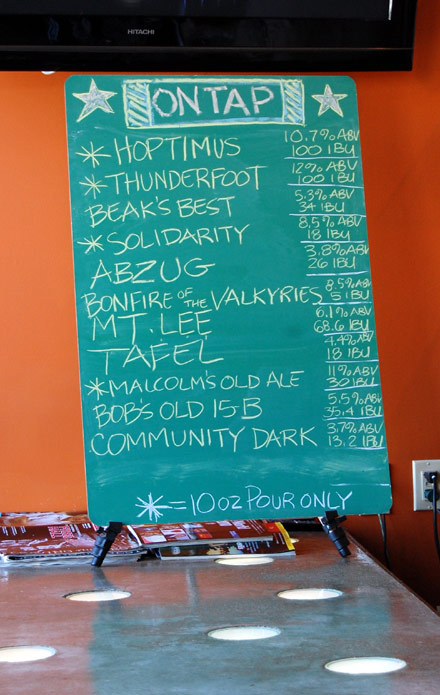 HITACHI
ON TAP
* HOPTIMUS 10.7% ABV
100 IBU
* THUNDERFOOT 12% ABV
100 IBU
BEAK'S BEST 5.3% ABV
34 IBU
* SOLIDARITY 8.5% ABV
18 IBU
ABZUG 3.8% ABV
26 IBU
BONFIRE OF THE VALKYRIES 8.5% ABV
51 IBU
MT. LEE 6.1% ABV
68.6 IBU
TAFEL 4.4% ABV
18 IBU
* MALCOLM'S OLD ALE 11% ABV
30 IBU
BOB'S OLD 15-B 5.5% ABV
35.4 IBU
COMMUNITY DARK 3.7% ABV
13.2 IBU
* = 10 OZ POUR ONLY